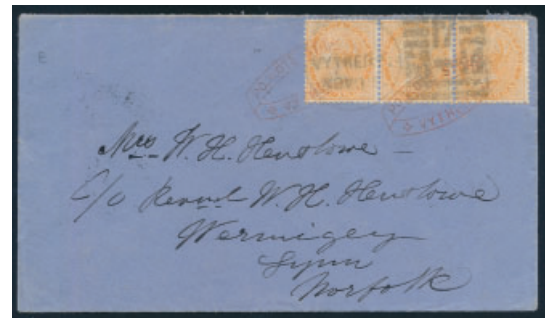 VYTHERY
Mrs W. H. Henslowe –
C/o Revd W. H. Henslowe
Wormigey
Lynn
Norfolk